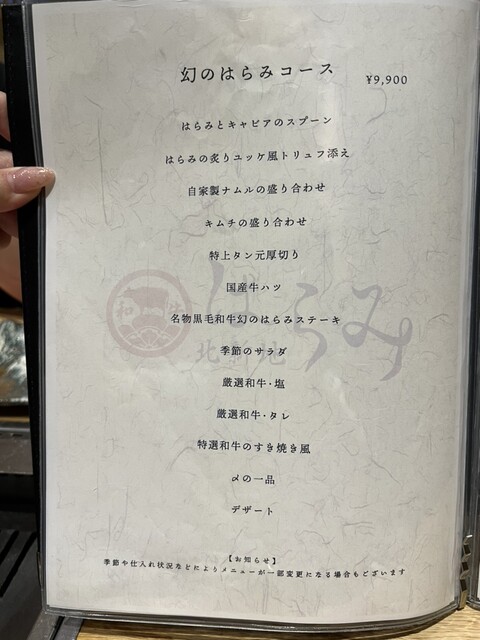 幻のはらみコース
¥9,900
はらみとキャビアのスプーン
はらみの炙りユッケ風トリュフ添え
自家製ナムルの盛り合わせ
キムチの盛り合わせ
特上タン元厚切り
国産牛ハツ
名物黒毛和牛幻のはらみステーキ
季節のサラダ
厳選和牛・塩
厳選和牛・タレ
特選和牛のすき焼き風
〆の一品
デザート
【お知らせ】
季節や仕入れ状況などによりメニューが一部変更になる場合もございます
和牛
はらみ